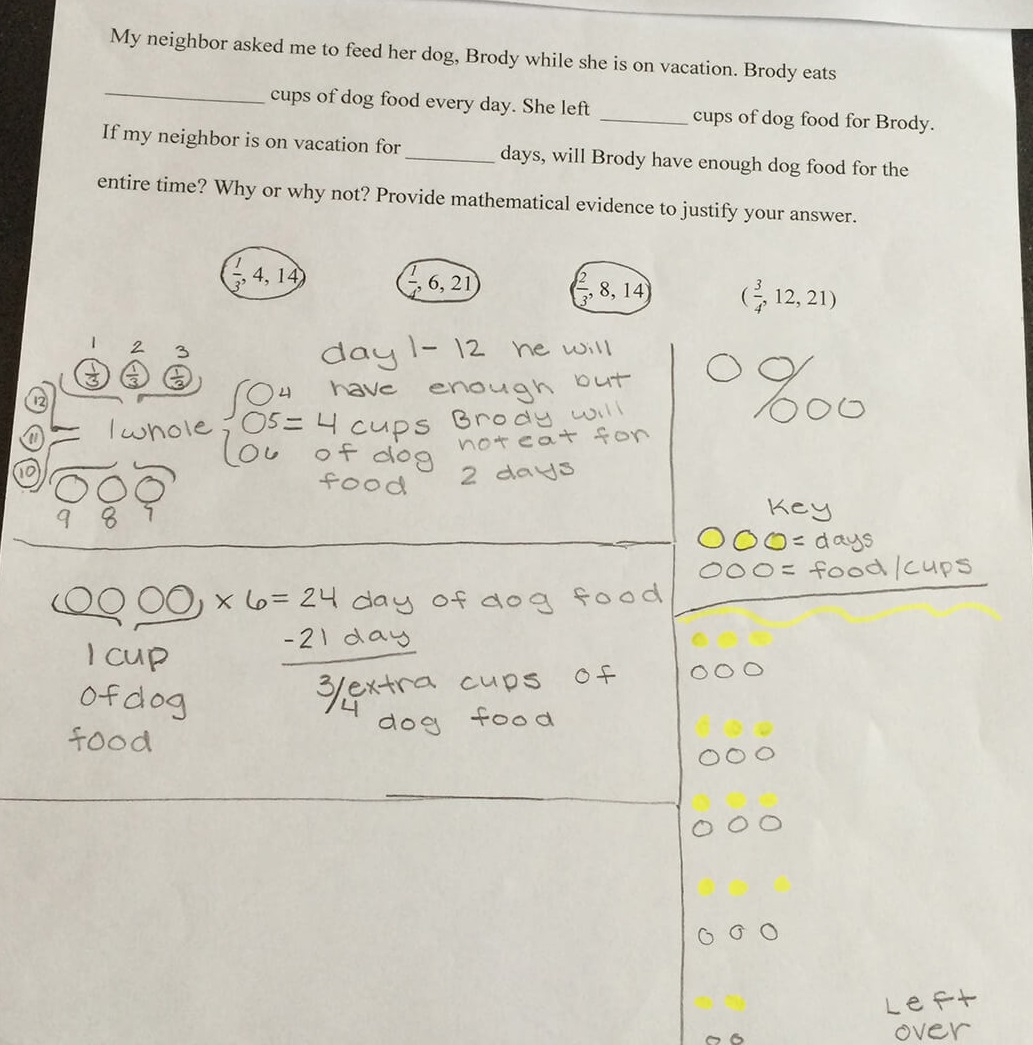 My neighbor asked me to feed her dog, Brody while she is on vacation. Brody eats
____________ cups of dog food every day. She left ________ cups of dog food for Brody.
If my neighbor is on vacation for ________ days, will Brody have enough dog food for the
entire time? Why or why not? Provide mathematical evidence to justify your answer.
(1/3, 4, 14) (1/4, 6, 21) (2/3, 8, 14) (3/4, 12, 21)
1 2 3
1/3 1/3 1/3
12
11 = 1 whole
10
9 8 7
4
5 = 4 cups
6 of dog
food
day 1- 12 he will
have enough but
Brody will
not eat for
2 days
x 6 = 24 day of dog food
-21 day
1 cup
of dog
food
3/4 extra cups of
dog food
Key
= days
= food/cups
Left
over